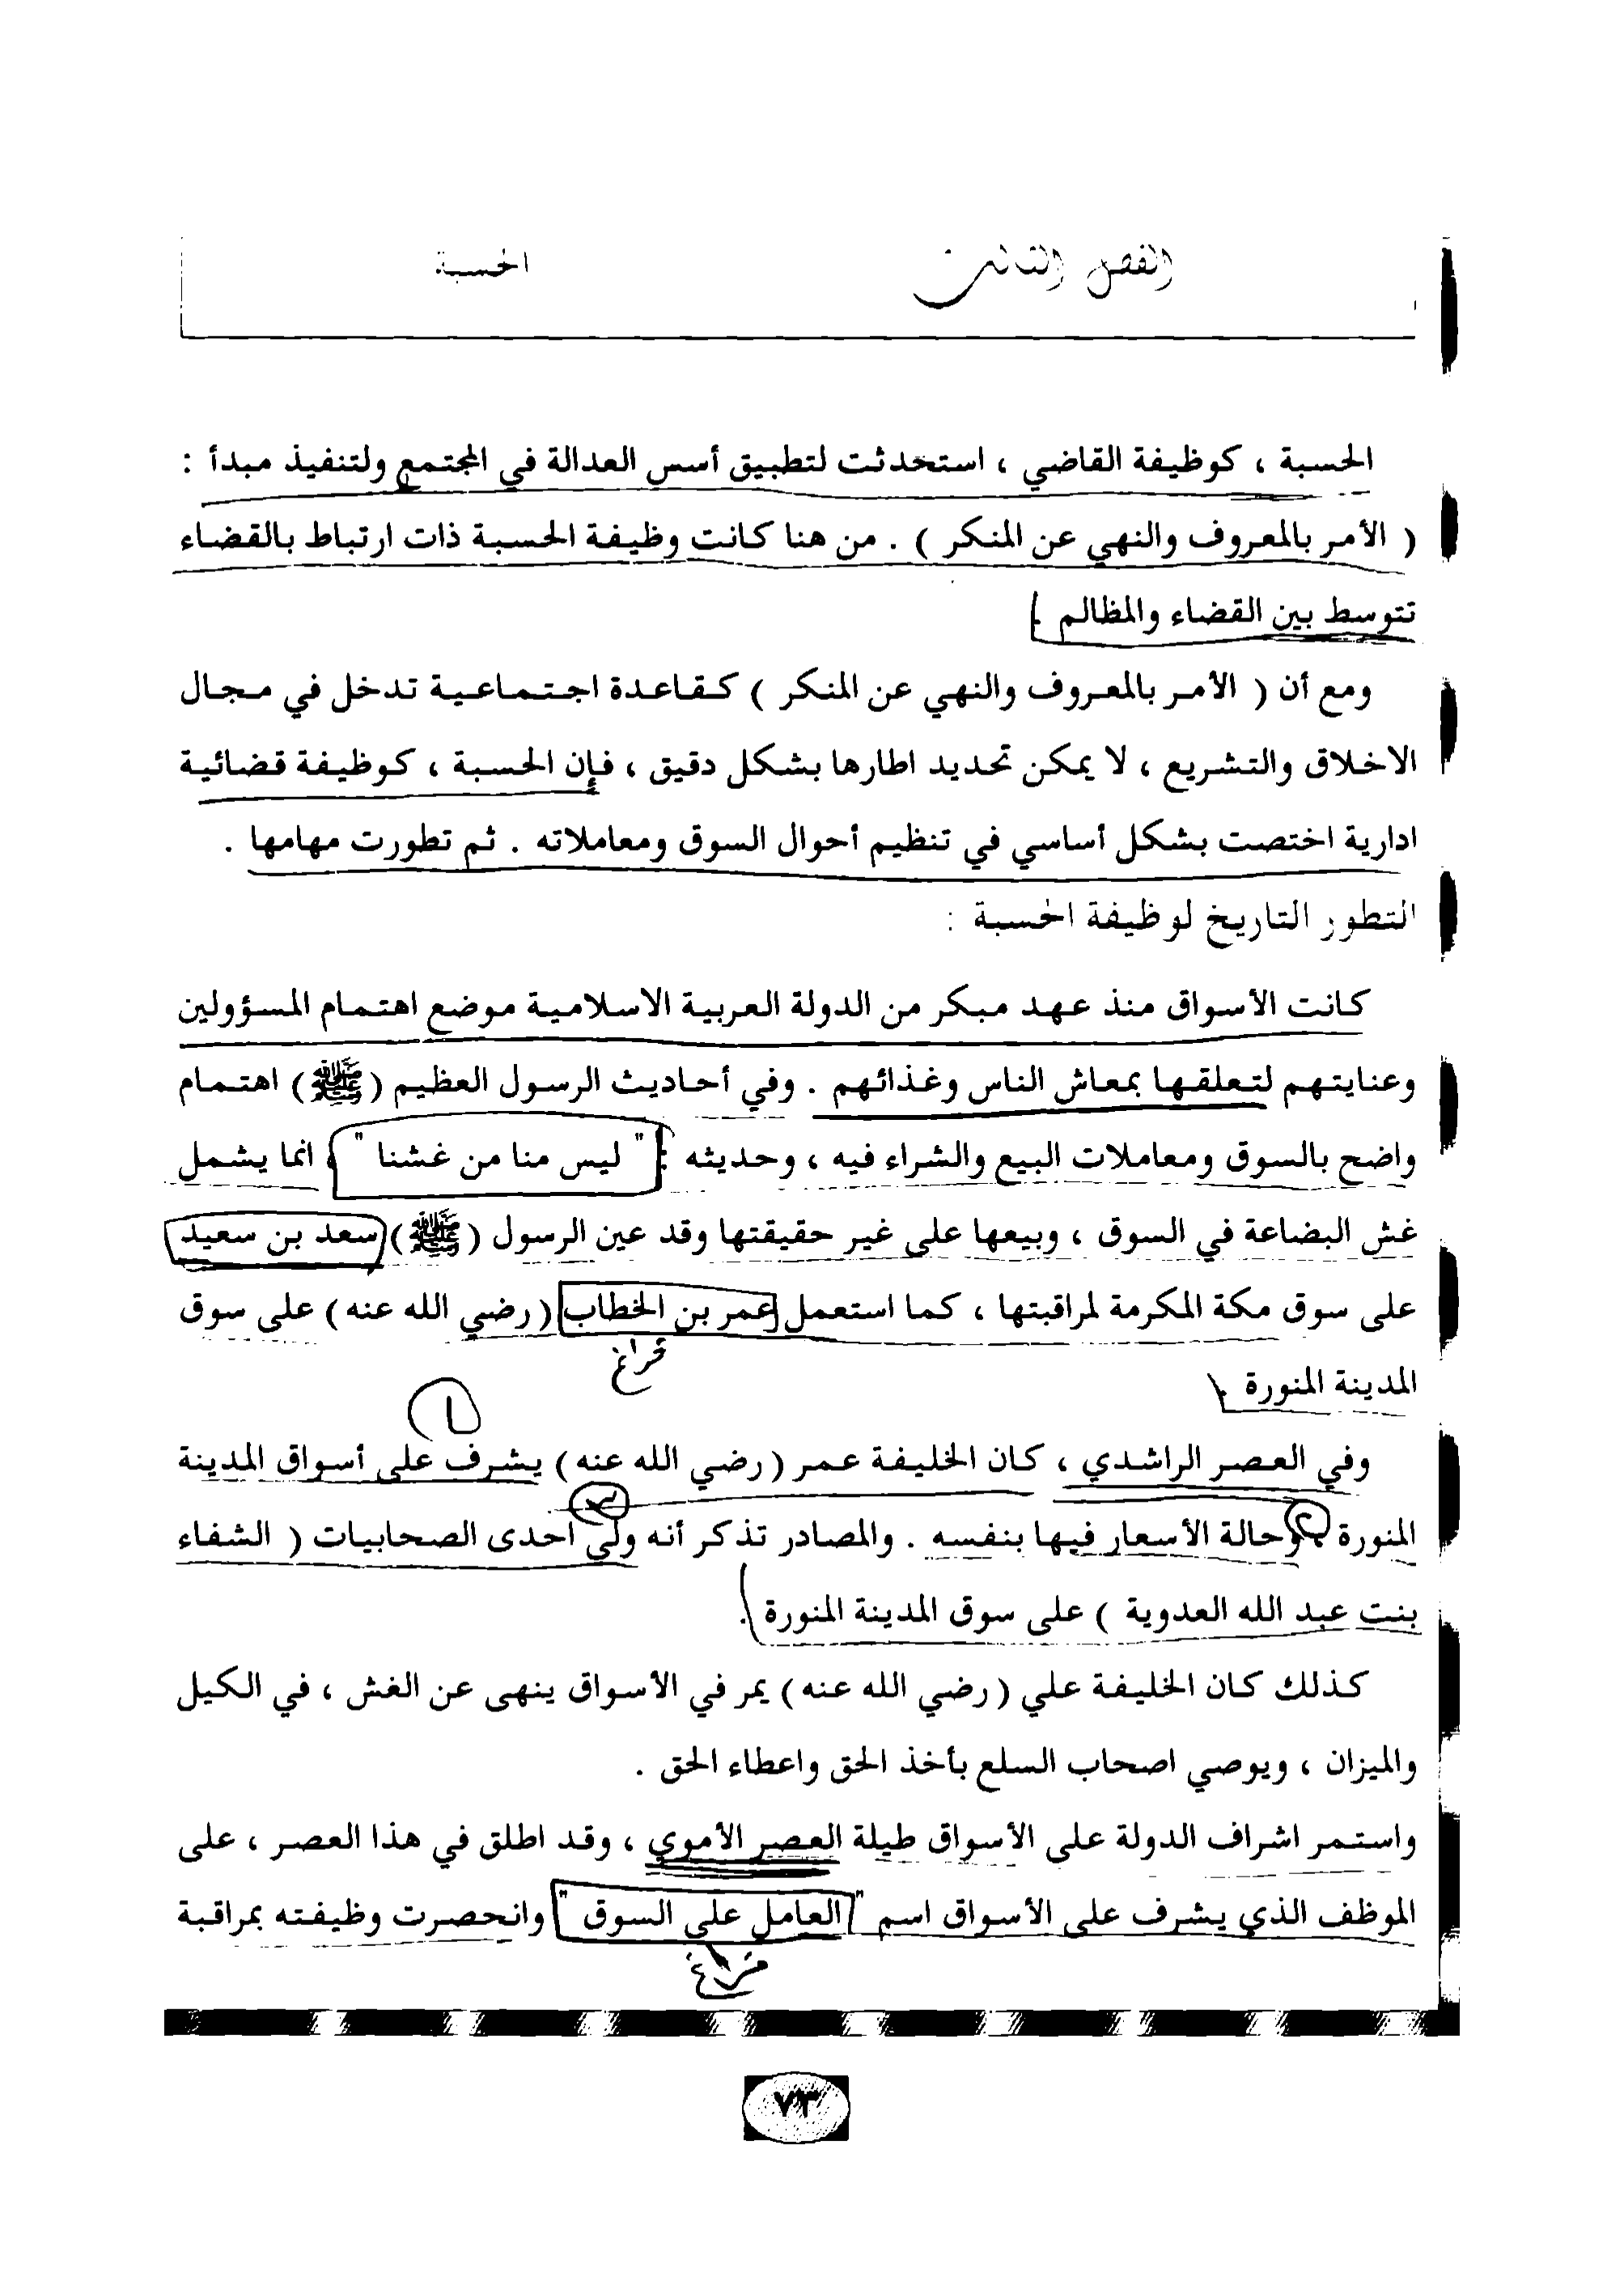 الفصل الثالث
الحسبة
الحسبة ، كوظيفة القاضي ، استحدثت لتطبيق أسس العدالة في المجتمع ولتنفيذ مبدأ :
( الأمر بالمعروف والنهي عن المنكر ) . من هنا كانت وظيفة الحسبة ذات ارتباط بالقضاء
تتوسط بين القضاء والمظالم .
ومع أن ( الأمر بالمعروف والنهي عن المنكر ) كقاعدة اجتماعية تدخل في مجال
الاخلاق والتشريع ، لا يمكن تحديد اطارها بشكل دقيق ، فإن الحسبة ، كوظيفة قضائية
ادارية اختصت بشكل أساسي في تنظيم أحوال السوق ومعاملاته . ثم تطورت مهامها .
التطور التاريخ لوظيفة الحسبة :
كانت الأسواق منذ عهد مبكر من الدولة العربية الاسلامية موضع اهتمام المسؤولين
وعنايتهم لتعلقها بمعاش الناس وغذائهم . وفي أحاديث الرسول العظيم (ﷺ) اهتمام
واضح بالسوق ومعاملات البيع والشراء فيه ، وحديثه : " ليس منا من غشنا " ، انما يشمل
غش البضاعة في السوق ، وبيعها على غير حقيقتها وقد عين الرسول (ﷺ) سعد بن سعيد
على سوق مكة المكرمة لمراقبتها ، كما استعمل عمر بن الخطاب ( رضي الله عنه ) على سوق
فراغ
المدينة المنورة .
١
وفي العصر الراشدي ، كان الخليفة عمر ( رضي الله عنه ) يشرف على أسواق المدينة
المنورة ، وحالة الأسعار فيها بنفسه . والمصادر تذكر أنه ولى احدى الصحابيات ( الشفاء
بنت عبد الله العدوية ) على سوق المدينة المنورة .
كذلك كان الخليفة علي ( رضي الله عنه ) يمر في الأسواق ينهى عن الغش ، في الكيل
والميزان ، ويوصي اصحاب السلع بأخذ الحق واعطاء الحق .
واستمر اشراف الدولة على الأسواق طيلة العصر الأموي ، وقد اطلق في هذا العصر ، على
الموظف الذي يشرف على الأسواق اسم " العامل على السوق " وانحصرت وظيفته بمراقبة
فراغ
٧٣